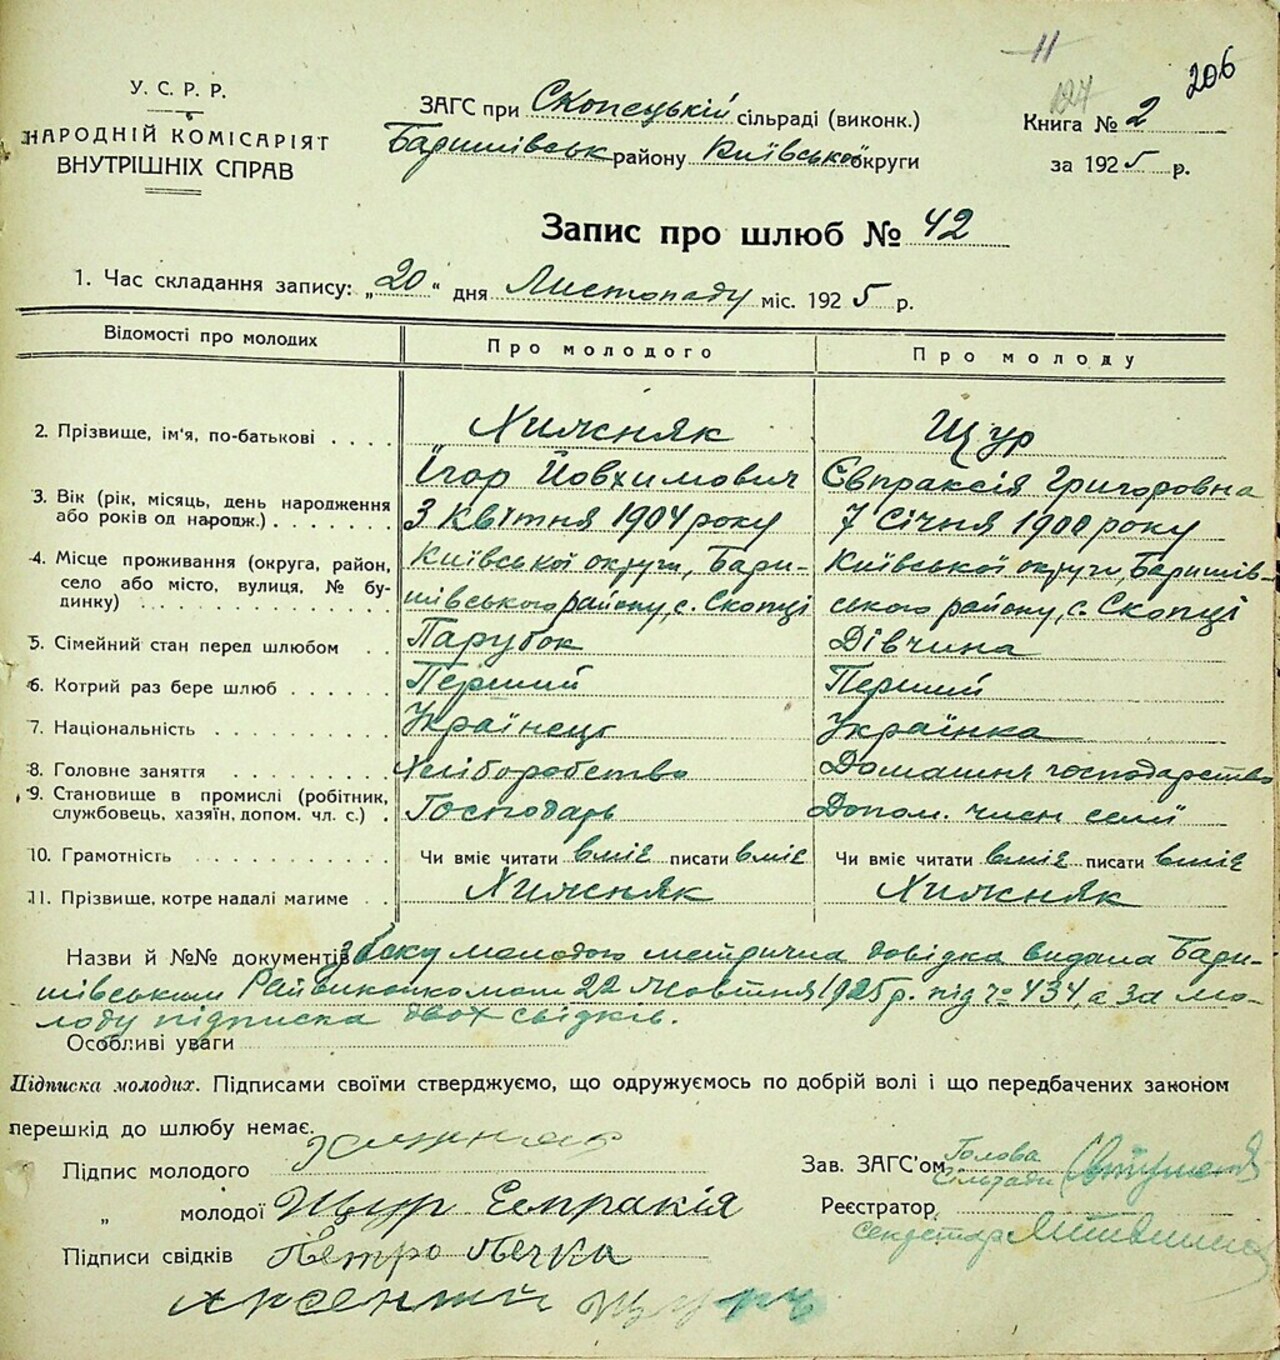 11
127
206
У. С. Р. Р.
НАРОДНІЙ КОМІСАРІЯТ
ВНУТРІШНІХ СПРАВ
ЗАГС при Скопецькій сільраді (виконк.)
Баришівськ району Київської округи
Книга № 2
за 1925 р.
Запис про шлюб № 42
1. Час складання запису: „20“ дня Листопаду міс. 1925 р.
Відомості про молодих
Про молодого
Про молоду
2. Прізвище, ім'я, по-батькові . . . . Хижняк Щур
Ігор Йовхимович Євпраксія Григоровна
3. Вік (рік, місяць, день народження
або років од народж.) . . . . . . . 3 Квітня 1904 року 7 Січня 1900 року
4. Місце проживання (округа, район, Київської округи, Бари- Київської округи, Баришів-
село або місто, вулиця, № бу-
динку) . . . . . . . . . . . . шівського району, с. Скопці ського району, с. Скопці
5. Сімейний стан перед шлюбом . . Парубок Дівчина
6. Котрий раз бере шлюб . . . . . . Перший Перший
7. Національність . . . . . . . . . Українець Українка
8. Головне заняття . . . . . . . . Хліборобство Домашнє господарство
9. Становище в промислі (робітник,
службовець, хазяїн, допом. чл. с.) . Господарь Допом. член семї
10. Грамотність . . . . . . . . . . Чи вміє читати вміє писати вміє Чи вміє читати вміє писати вміє
11. Прізвище, котре надалі матиме . . Хижняк Хижняк
Назви й №№ документів з боку молодого метрична довідка видана Бари-
шівським Райвиконкомом 22 Жовтня 1925 р. під № 434, а за мо-
лоду підписка двох свідків.
Особливі уваги
Підписка молодих. Підписами своїми стверджуємо, що одружуємось по добрій волі і що передбачених законом
перешкід до шлюбу немає.
Підпис молодого
„ молодої Щур
Підписи свідків Петро Печка
Арсентий Щурь
Зав. ЗАГС'ом Голова
Сільради
Реєстратор
Секретар